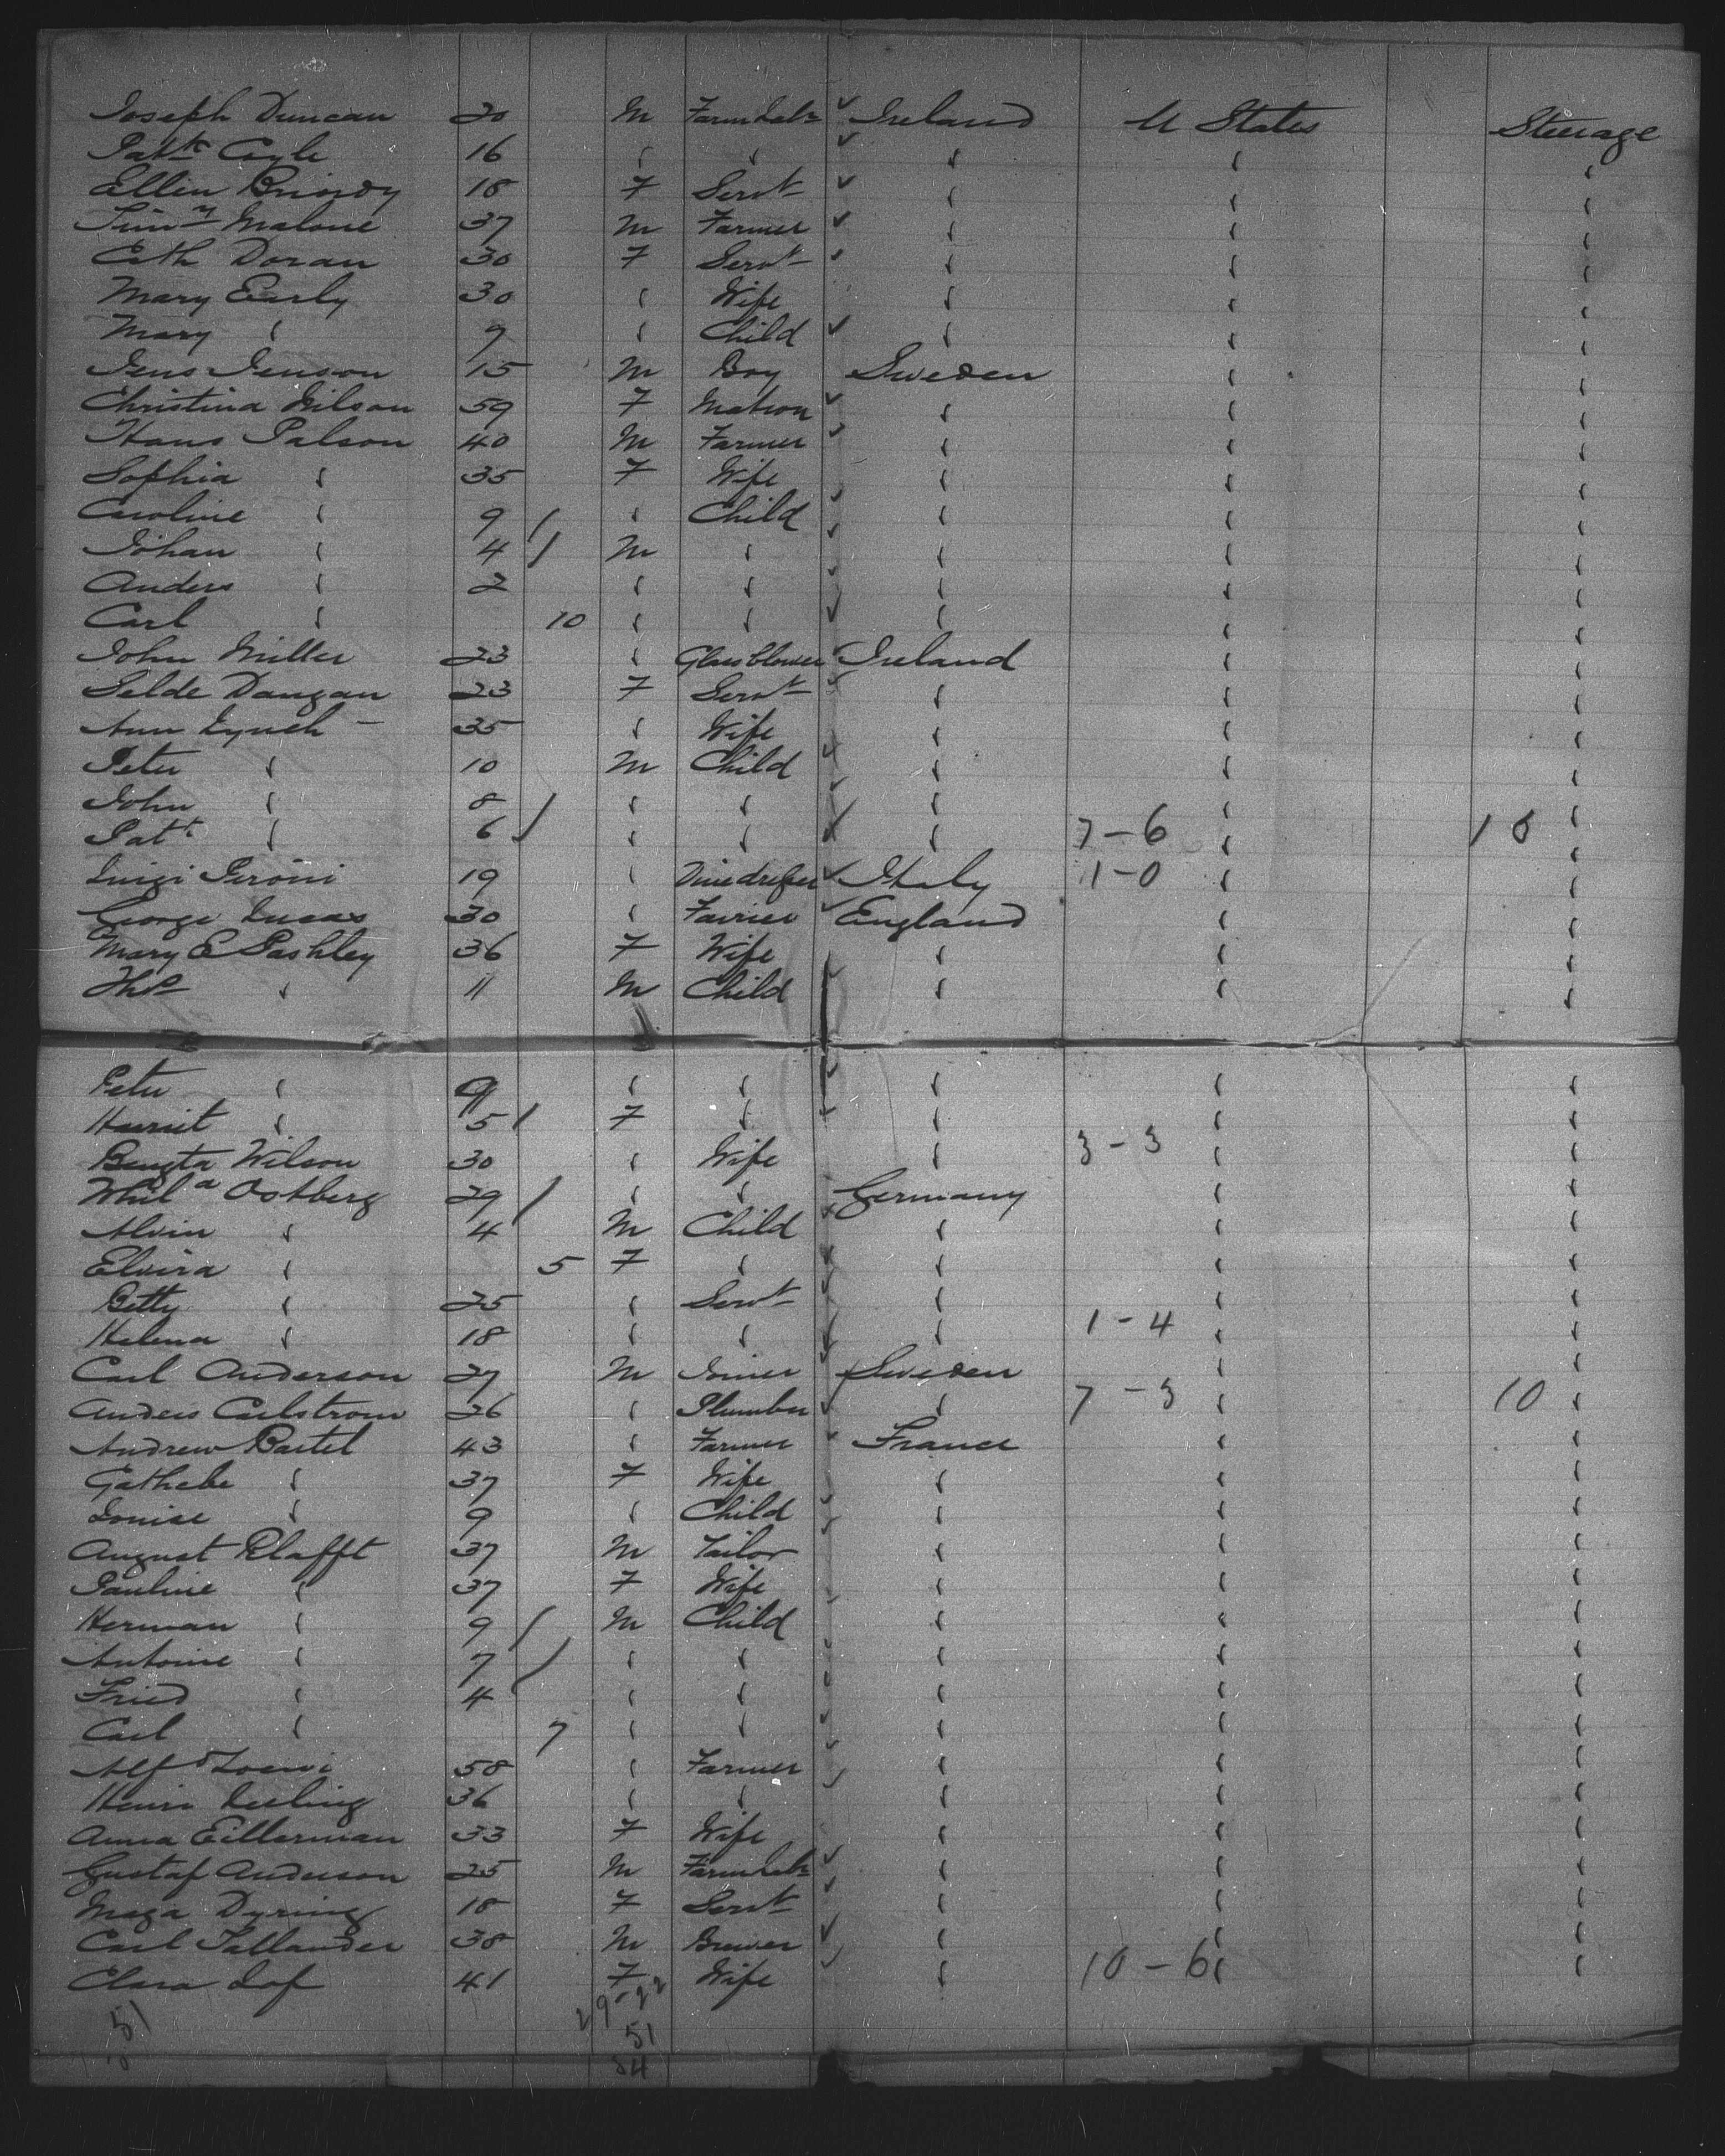 Joseph Duncan 20 M Farm Labr Ireland U States Steerage
Patk Coyle 16 " " " " "
Ellen Briody 18 F Servt " " "
Timy Malone 37 M Farmer " " "
Cath Doran 30 F Servt " " "
Mary Early 30 " Wife " " "
Mary " 9 " Child " " "
Jens Jenson 15 M Boy Sweden " "
Christina Nilson 59 F Matron " " "
Hans Palson 40 M Farmer " " "
Sophia " 35 F Wife " " "
Caroline " 9 / " Child " " "
Johan " 4 / M " " " "
Anders " 2 " " " " "
Carl " 10 " " " " "
John Miller 23 " Glass blower Ireland " "
Selde Dangan 23 F Servt " " "
Ann Lynch – 35 " Wife " " "
Peter " 10 M Child " " "
John " 8 / " " " " "
Patk " 6 / " " " 7-6 " 10 "
Luigi 19 " Italy 1-0 " "
George Lucas 30 " Farrier England " "
Mary E Pashley 36 F Wife " " "
Thos " 11 M Child " " "
Peter " 9 " " " " "
Harriet " 5 / F " " " "
Bengta Wilson 30 " Wife " 3-3 " "
Whila Ostberg 29 / " " Germany " "
Alvin " 4 M Child " " "
Elvira " 5 F " " " "
Betty " 25 " Servt " " "
Helena " 18 " " " 1-4 " "
Carl Anderson 27 M Joiner Sweden " "
Anders Carlstrom 26 " Plumber " 7-3 " 10 "
Andrew Bartel 43 " Farmer France " "
Gathebe " 37 F Wife " " "
Louise " 9 " Child " " "
August Klafft 37 M Tailor " " "
Pauline " 37 F Wife " " "
Herman " 9 / M Child " " "
Antoine " 7 / " " " " "
Fried " 4 " " " " "
Carl " 7 " " " " "
Alfd Loewi 58 " Farmer " " "
Henri Keeling 36 " " " " "
Anna Eillerman 33 F Wife " " "
Gustaf Anderson 25 M Farm Labr " " "
Maga Dyring 18 F Servt " " "
Carl Tallander 38 M Brewer " " "
Clara Lof 41 F Wife " 10-6 " "
51 29-22
51
84